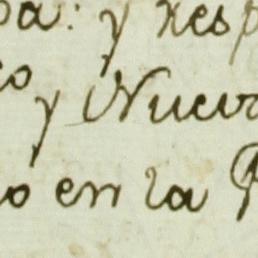 y resp
y Nuev
o en la P